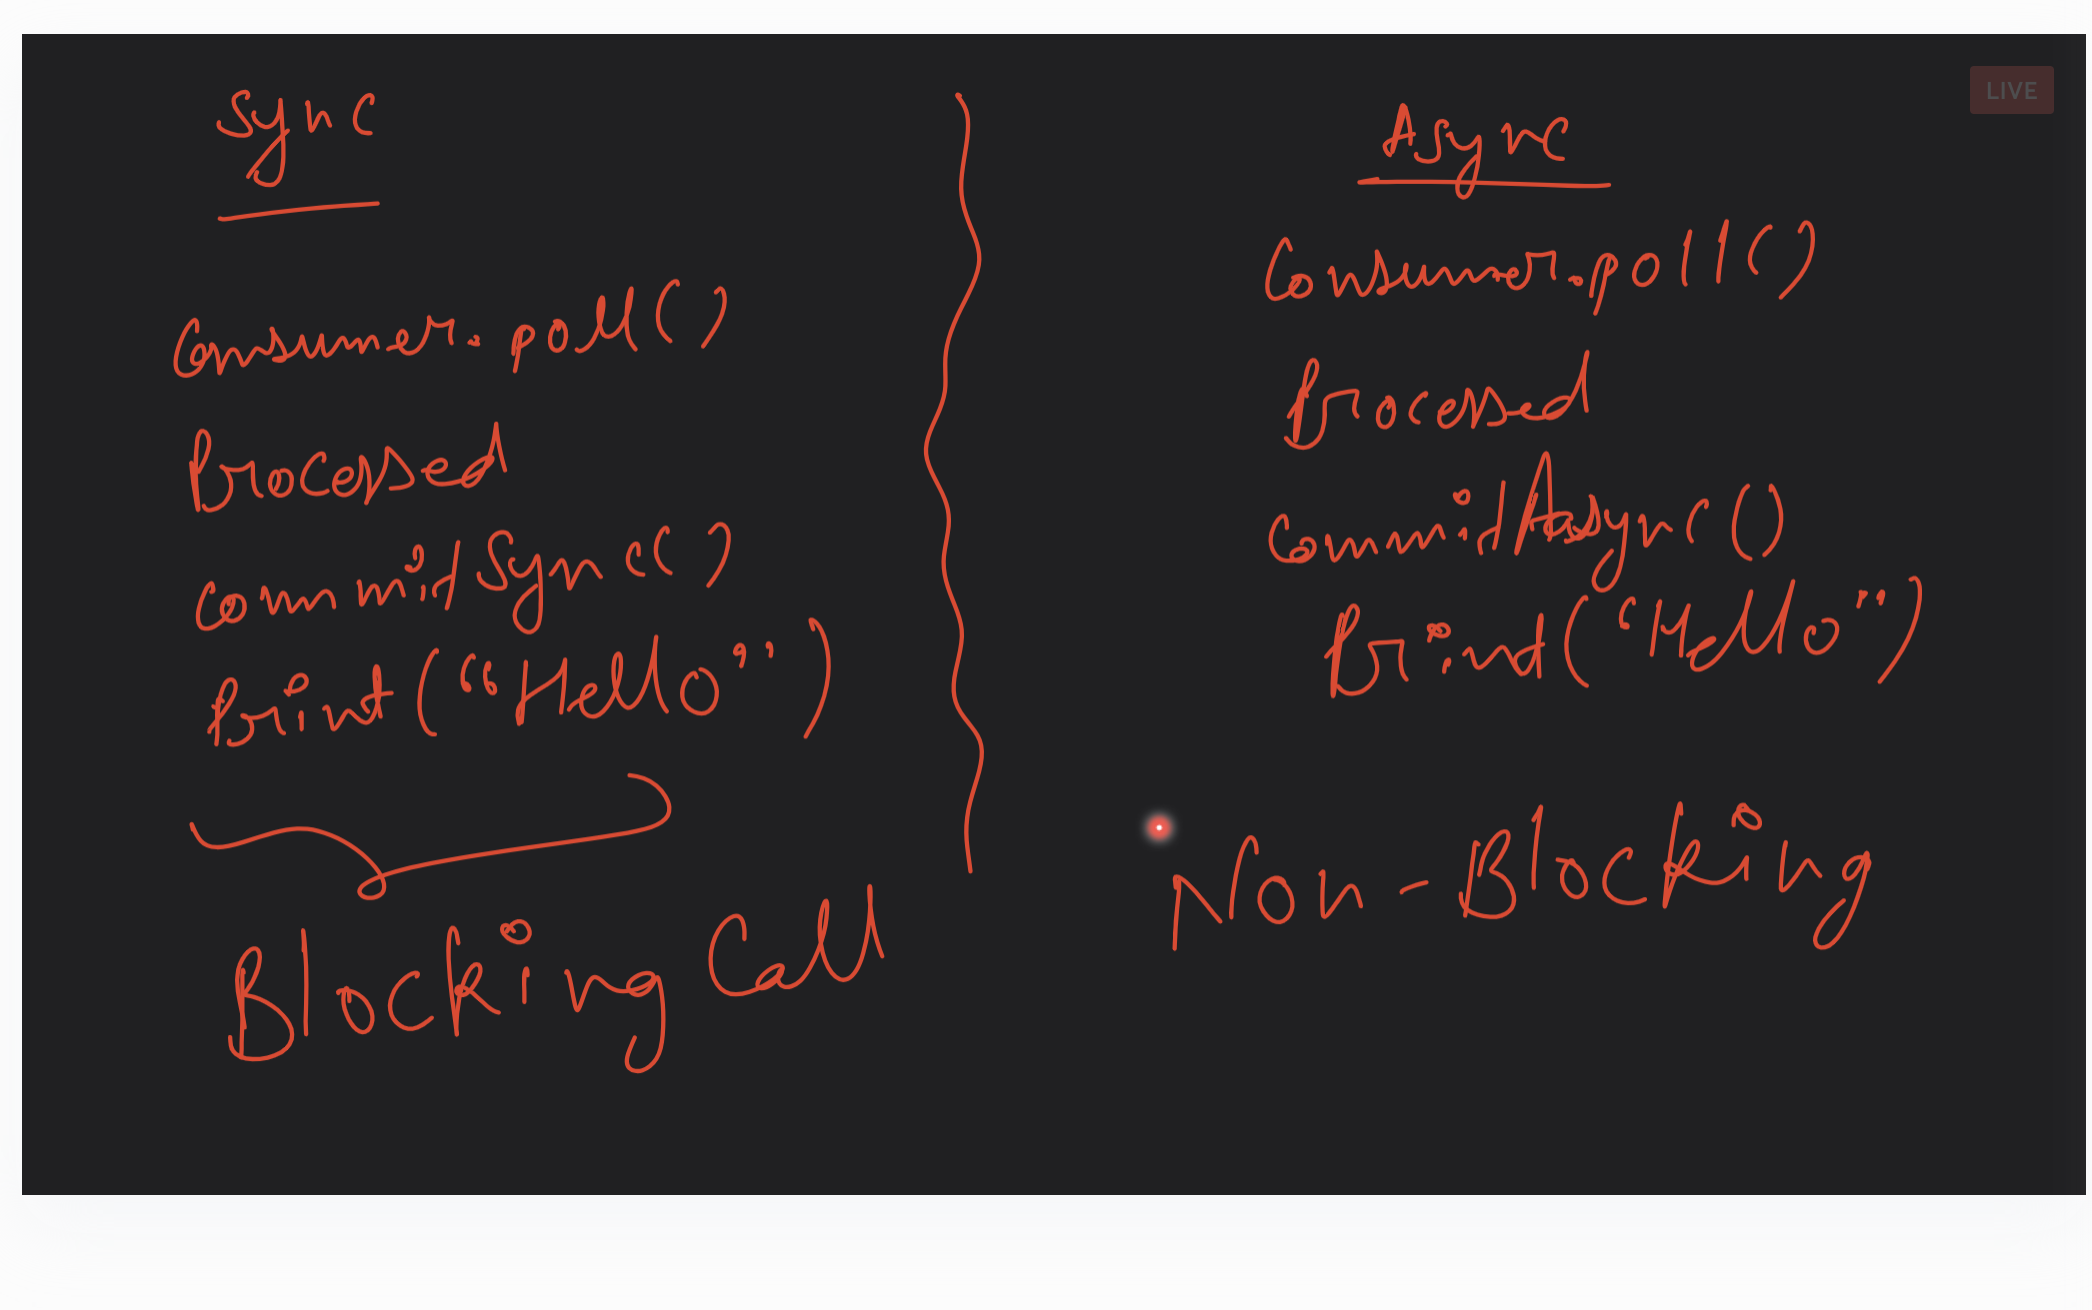 Sync
Consumer.poll()
Processed
commitSync()
Print("Hello")
Blocking Call
Async
Consumer.poll()
Processed
CommitAsync()
Print("Hello")
Non-Blocking
LIVE